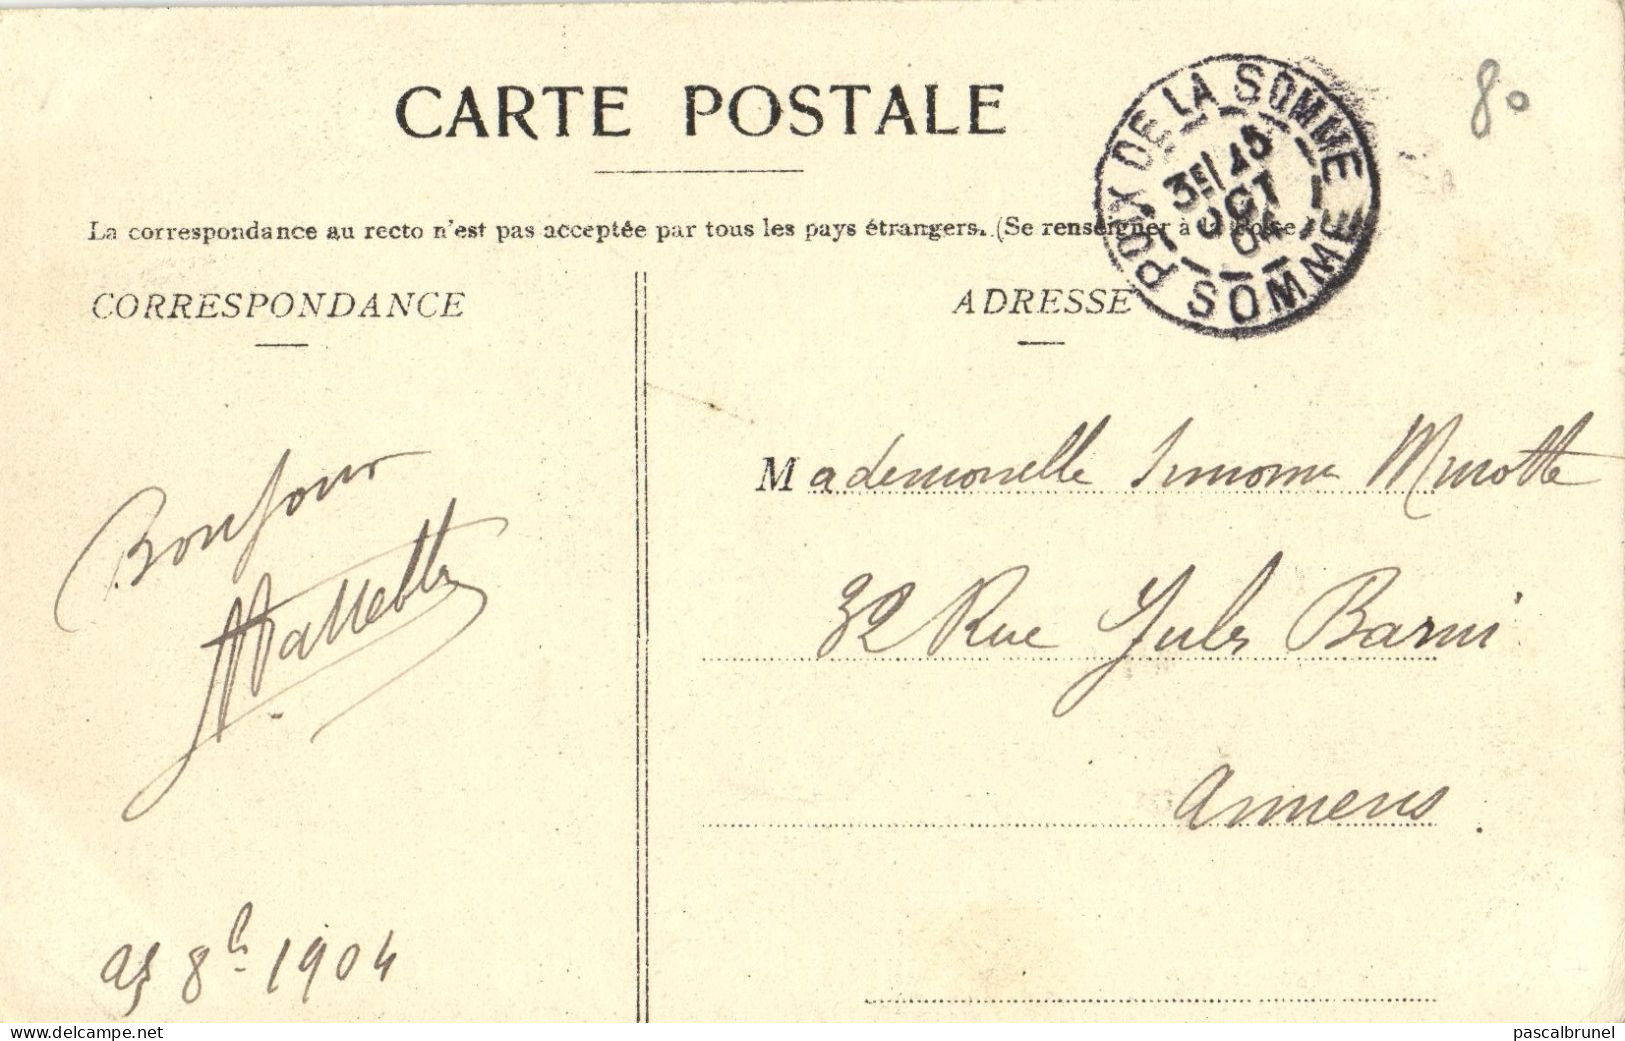 CARTE POSTALE
80
POIX DE LA SOMME
3E/15
OCT
04
SOMME
La correspondance au recto n'est pas acceptée par tous les pays étrangers. (Se renseigner à la Poste)
CORRESPONDANCE
ADRESSE
Bonjour
Mademoiselle Simone Minotte
32 Rue Jules Barni
Amiens.
8b 1904
www.delcampe.net
pascalbrunel